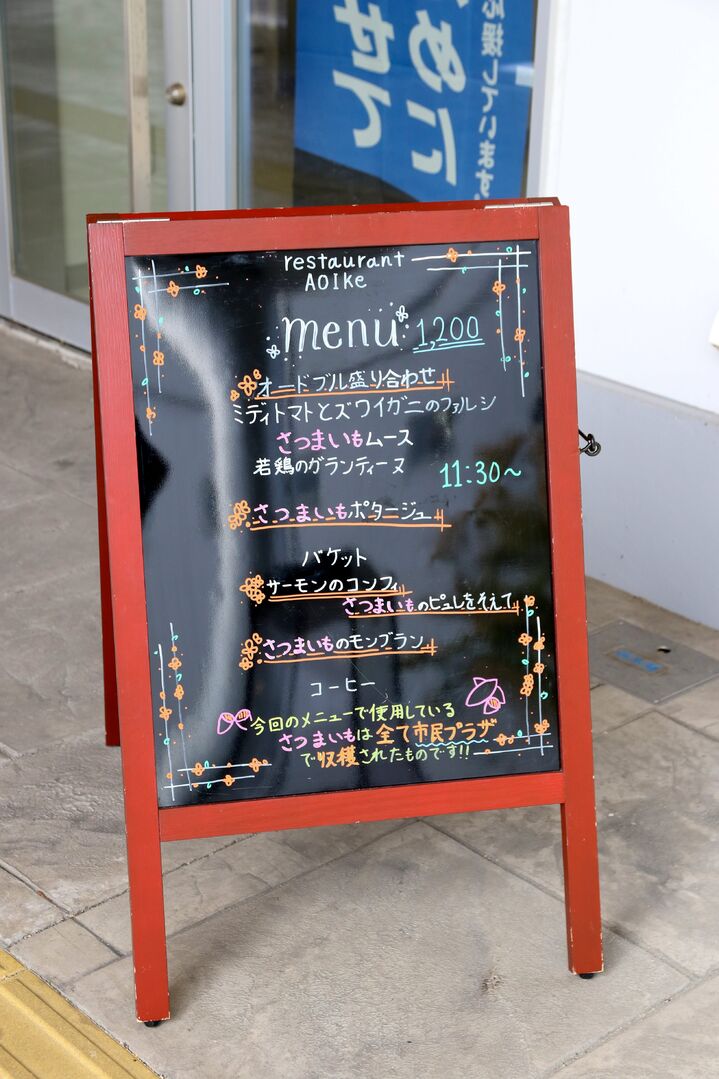 応援しています。
めに
せて
restaurant
AOIke
menu 1,200
オードブル盛り合わせ
ミディトマトとズワイガニのファルシ
さつまいもムース
若鶏のガランティーヌ
11:30~
さつまいもポタージュ
バケット
サーモンのコンフィ
さつまいものピュレをそえて
さつまいものモンブラン
コーヒー
今回のメニューで使用している
さつまいもは全て市民プラザ
で収穫されたものです!!